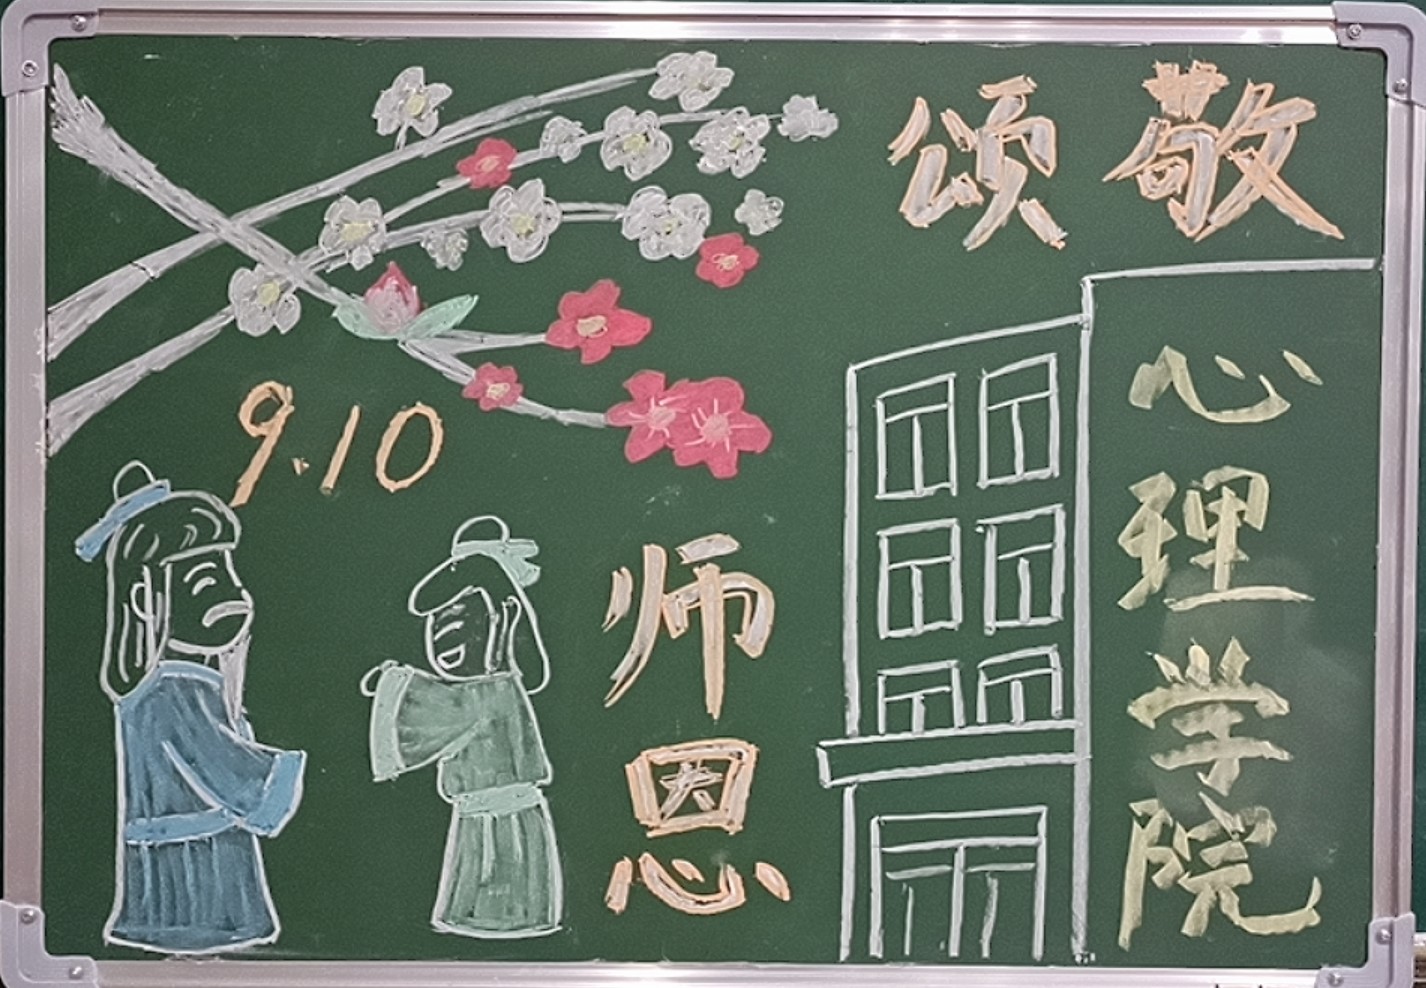 敬颂
师恩
9.10
心理学院